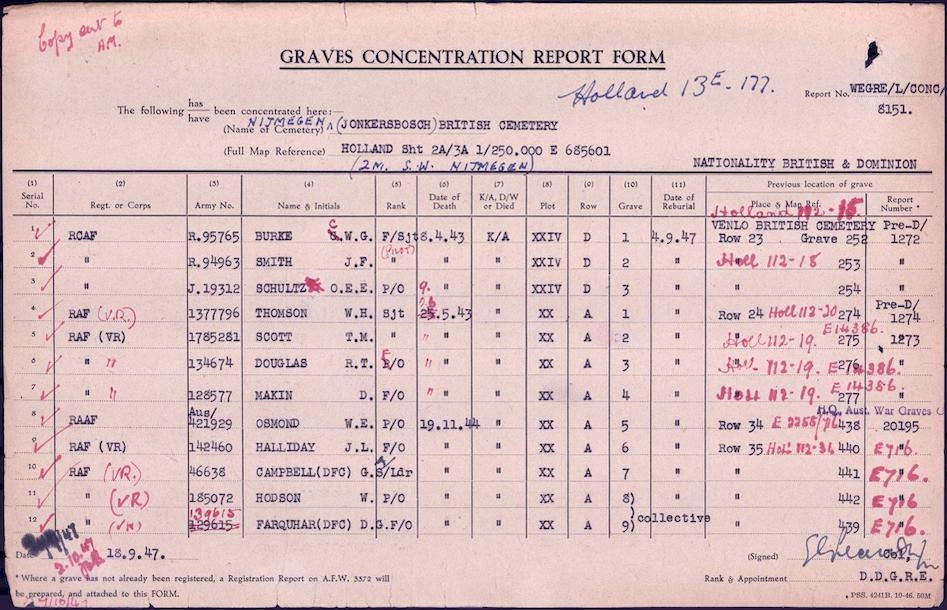 Copy sent to
A.M.
GRAVES CONCENTRATION REPORT FORM
Holland 13E-177.
Report No. WEGRE/L/CONC/
8151.
The following has/have been concentrated here:—
NIJMEGEN
(Name of Cemetery) (JONKERSBOSCH) BRITISH CEMETERY
(Full Map Reference) HOLLAND Sht 2A/3A 1/250.000 E 685601
(2M. S.W. NIJMEGEN)
NATIONALITY BRITISH & DOMINION
(1) (2) (3) (4) (5) (6) (7) (8) (9) (10) (11) Previous location of grave
Serial No. Regt. or Corps Army No. Name & Initials Rank Date of Death K/A, D/W or Died Plot Row Grave Date of Reburial Place & Map Ref. Report Number *
Holland 112-18
VENLO BRITISH CEMETERY Pre-D/
1 RCAF R.95765 BURKE C.W.G. F/Sjt 8.4.43 K/A XXIV D 1 4.9.47 Row 23 Grave 252 1272
(Pilot)
2 " R.94963 SMITH J.F. " " " XXIV D 2 " Holl 112-18 " 253 "
3 " J.19312 SCHULTZ O.E.E. P/O 9. " " XXIV D 3 " " 254 "
26
4 RAF (V.R.) 1377796 THOMSON W.H. Sjt 25.5.43 " XX A 1 " Row 24 Holl 112-20 274 Pre-D/ 1274
E14386.
5 RAF (VR) 1785281 SCOTT T.M. " " " XX A 2 " Holl 112-19. 275 1273
6 " " 134674 DOUGLAS R.T. F/O " " XX A 3 " Holl 112-19. 276 E 14386.
7 " " 128577 MAKIN D. F/O " " XX A 4 " Holl 112-19. 277 E 14386.
H.Q. Aust. War Graves
8 RAAF Aus/ 421929 OSMOND W.E. P/O 19.11.44 " XX A 5 " Row 34 E 2258/716 438 20195
9 RAF (VR) 142460 HALLIDAY J.L. F/O " " XX A 6 " Row 35 Holl 112-36 440 E716.
10 RAF (VR.) 46638 CAMPBELL(DFC) G. S/Ldr " " XX A 7 " " 441 E716.
11 " (VR) 185072 HODSON W. P/O " " XX A 8) " " 442 E716
) collective
139615
12 " (VR) 129615 FARQUHAR(DFC) D.G. F/O " " XX A 9) " " 439 E716.
Date 18.9.47.
2.10.47
(Signed) Col,
* Where a grave has not already been registered, a Registration Report on A.F.W. 3372 will
be prepared, and attached to this FORM.
Rank & Appointment D.D.G.R.E.
9/10/47
PSS. 4241B. 10-46. 50M